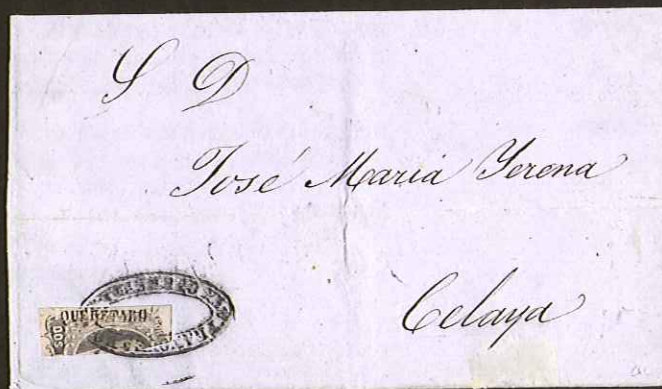 S D
José Maria Yerena
Celaya
QUERÉTARO